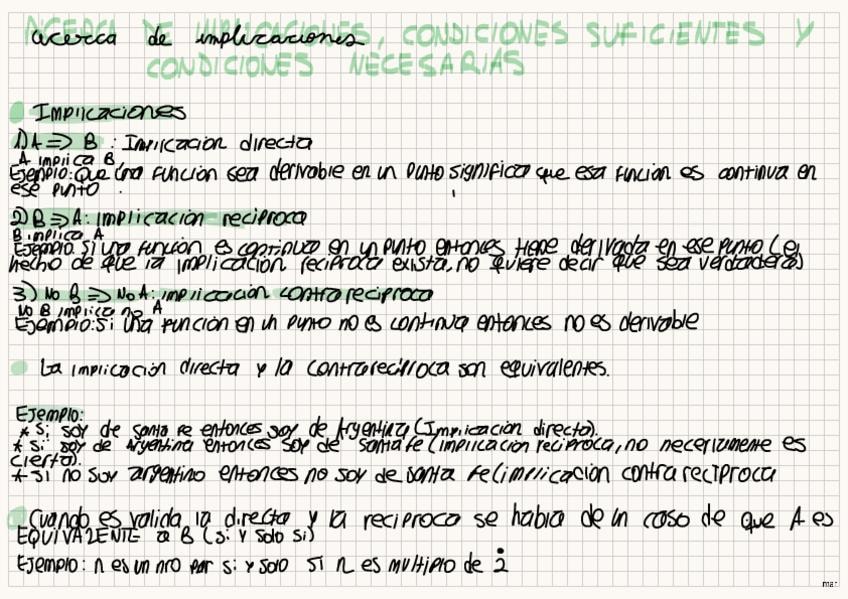 ACERCA DE IMPLICACIONES, CONDICIONES SUFICIENTES Y
acerca de implicaciones
CONDICIONES NECESARIAS
Implicaciones
1) A => B : Implicacion directa
A implica B
Ejemplo: Que una función sea derivable en un punto significa que esa función es continua en
ese punto
2) B => A: implicación reciproca
B implica A
Ejemplo: Si una función es continua en un punto entonces tiene derivada en ese punto (el
hecho de que la implicación reciproca exista, no quiere decir que sea verdadera)
3) No B => No A: implicación contrareciproca
No B implica no A
Ejemplo: Si una función en un punto no es continua entonces no es derivable
La implicación directa y la contrareciproca son equivalentes.
Ejemplo:
* Si soy de santa fe entonces soy de Argentina (Implicación directa).
* Si soy de Argentina entonces soy de santa fe (implicación reciproca, no necesariamente es
cierta).
* Si no soy argentino entonces no soy de santa fe (implicación contrareciproca
Cuando es valida la directa y la reciproca se habla de un caso de que A es
EQUIVALENTE a B (si y solo si)
Ejemplo: n es un nro par si y solo si n es multiplo de 2̇
mar